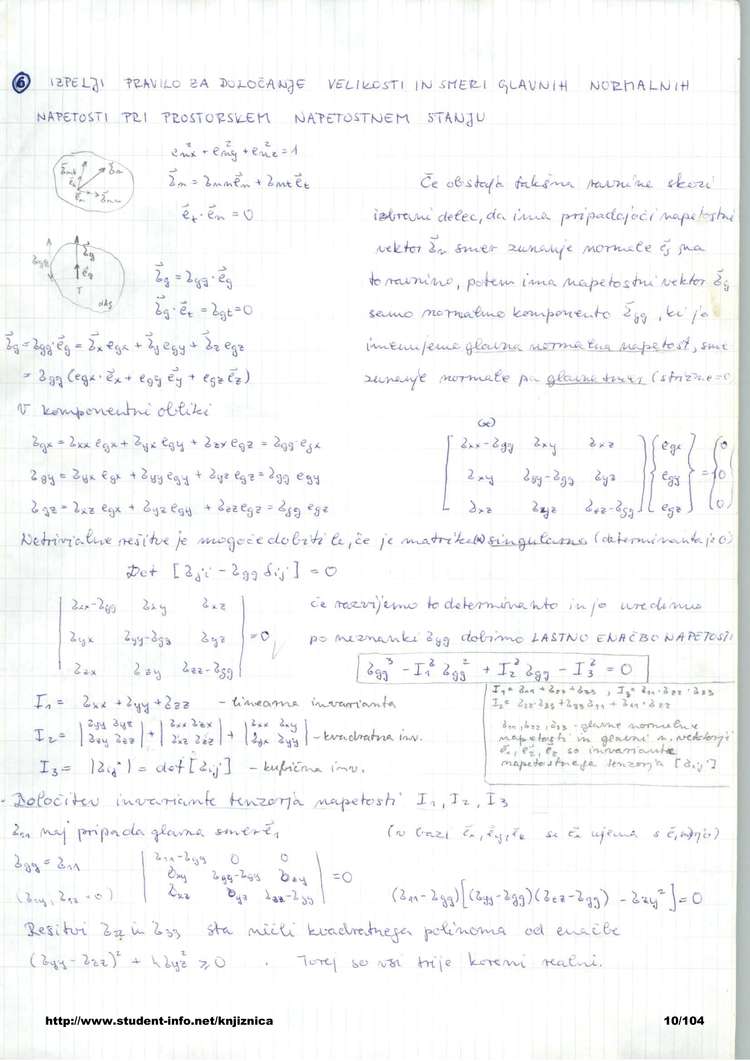 6 IZPELJI PRAVILO ZA DOLOČANJE VELIKOSTI IN SMERI GLAVNIH NORMALNIH
NAPETOSTI PRI PROSTORSKEM NAPETOSTNEM STANJU
e²nx + e²ny + e²nz = 1
σ⃗n = σnn e⃗n + σnt e⃗t
e⃗t · e⃗n = 0
Če obstaja takšna ravnina skozi
izbrani delec, da ima pripadajoči napetostni
vektor σ⃗n smer zunanje normale e⃗g na
to ravnino, potem ima napetostni vektor σ⃗g
samo normalno komponento σ⃗gg, ki jo
imenujemo glavna normalna napetost, smer
zunanje normale pa glavna smer (strižne=0)
σ⃗g = σgg · e⃗g
σ⃗g · e⃗t = σgt = 0
σ⃗g = σgg · e⃗g = σ⃗x egx + σ⃗y egy + σ⃗z egz
= σgg (egx · e⃗x + egy e⃗y + egz e⃗z)
V komponentni obliki
σgx = σxx egx + σyx egy + σzx egz = σgg · egx
σgy = σyx egx + σyy egy + σyz egz = σgg egy
σgz = σxz egx + σyz egy + σzz egz = σgg egz
(*)
[ σxx-σgg σxy σxz ] { egx } { 0
[ σxy σyy-σgg σyz ] { egy } = { 0 }
[ σxz σyz σzz-σgg ] { egz } { 0 }
Netrivialne rešitve je mogoče dobiti le, če je matrika (*) singularna (determinanta je 0)
Det [σji - σgg δij] = 0
| σxx-σgg σxy σxz |
| σyx σyy-σgg σyz | = 0
| σzx σzy σzz-σgg |
če razvijemo to determinanto in jo uredimo
po neznanki σgg dobimo LASTNO ENAČBO NAPETOSTI
σgg³ - I₁ᶻ σgg² + I₂ᶻ σgg - I₃ᶻ = 0
I₁ = σxx + σyy + σzz - linearna invarianta
I₂ = | σyy σyz σzy σzz | + | σxx σzx σxz σzz | + | σxx σxy σyx σyy | - kvadratna inv.
I₃ = |σij| = det [σij] - kubična inv.
I₁ = σ₁₁ + σ₂₂ + σ₃₃ , I₃ = σ₁₁ · σ₂₂ · σ₃₃
I₂ = σ₂₂ · σ₃₃ + σ₃₃ σ₁₁ + σ₁₁ · σ₂₂
σ₁₁, σ₂₂, σ₃₃ - glavne normalne
napetosti in glavni n. vektorji
e⃗₁, e⃗₂, e⃗₃ so invariante
napetostnega tenzorja [σij]
- Določitev invariante tenzorja napetosti I₁, I₂, I₃
σ₁₁ naj pripada glavna smer e⃗₁
(v bazi e⃗x, e⃗y, e⃗z se e⃗x ujema s e⃗₁)
σgg = σ₁₁
| σ₁₁-σgg 0 0 |
| σxy σyy-σgg σzy | = 0
| σxz σyz σzz-σgg |
(σ₁₁-σgg)[(σyy-σgg)(σzz-σgg) - σzy²] = 0
Rešitvi σ₂₂ in σ₃₃ sta ničli kvadratnega polinoma od enačbe
(σyy - σzz)² + 4σyz² ≥ 0 . Torej so vsi trije koreni realni.
http://www.student-info.net/knjiznica
10/104